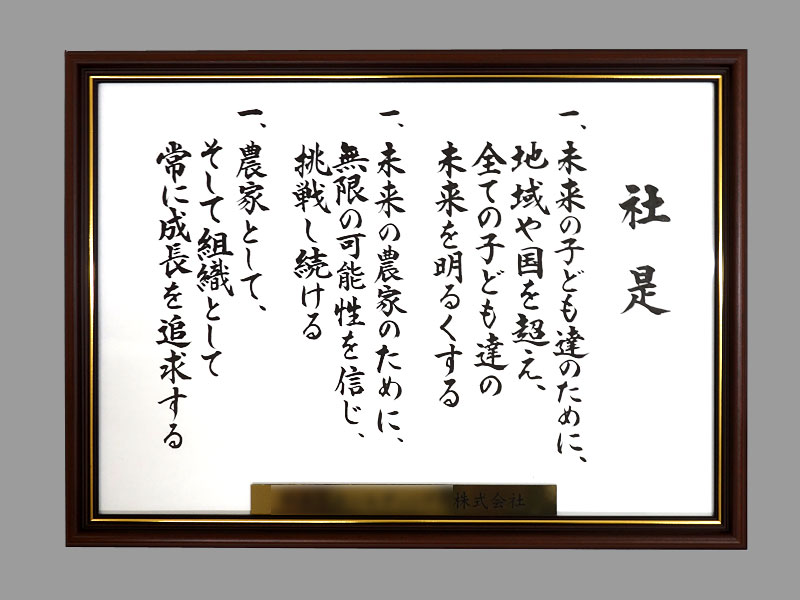 社是
一、未来の子ども達のために、
地域や国を超え、
全ての子ども達の
未来を明るくする
一、未来の農家のために、
無限の可能性を信じ、
挑戦し続ける
一、農家として、
そして組織として
常に成長を追求する
株式会社